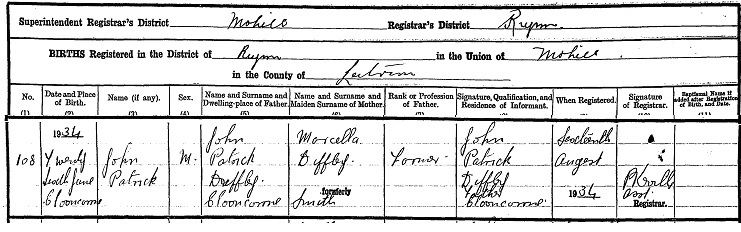 Superintendent Registrar's District Mohill Registrar's District Rynn
BIRTHS Registered in the District of Rynn in the Union of Mohill
in the County of Leitrim
No. Date and Place of Birth. Name (if any). Sex. Name and Surname and Dwelling-place of Father. Name and Surname and Maiden Surname of Mother. Rank or Profession of Father. Signature, Qualification, and Residence of Informant. When Registered. Signature of Registrar. Baptismal Name if added after Registration of Birth, and Date.
(1) (2) (3) (4) (5) (6) (7) (8) (9) (10) (11)
1934 John Marcella John Sixteenth
108 Twenty John M. Patrick Duffy Farmer Patrick August
sixth June Patrick Duffy formerly Duffy Father 1934 asst Registrar.
Clooncome Smith Clooncome